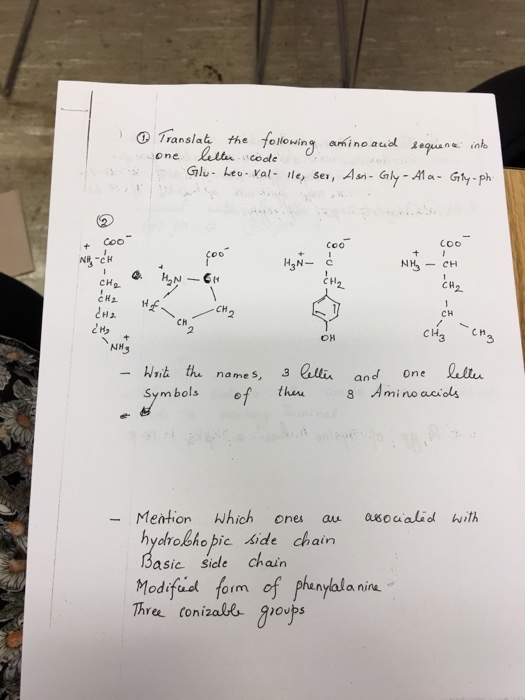 ① Translate the following amino acid sequence into
one letter code
Glu - Leu - Val - Ile, ser, Asn - Gly - Ala - Gly - ph
②
COO⁻
+
NH₃ - CH
CH₂
CH₂
CH₂
CH₂
+
NH₃
COO⁻
+
H₂N - CH
H₂C
CH₂
CH₂
COO⁻
+
H₃N - C
CH₂
OH
COO⁻
+
NH₃ - CH
CH₂
CH
CH₃ CH₃
- Write the names, 3 letter and one letter
symbols of these 3 Amino acids
- Mention which ones are associated with
hydrobhopic side chain
Basic side chain
Modified form of phenylalanine
Three ionizable groups